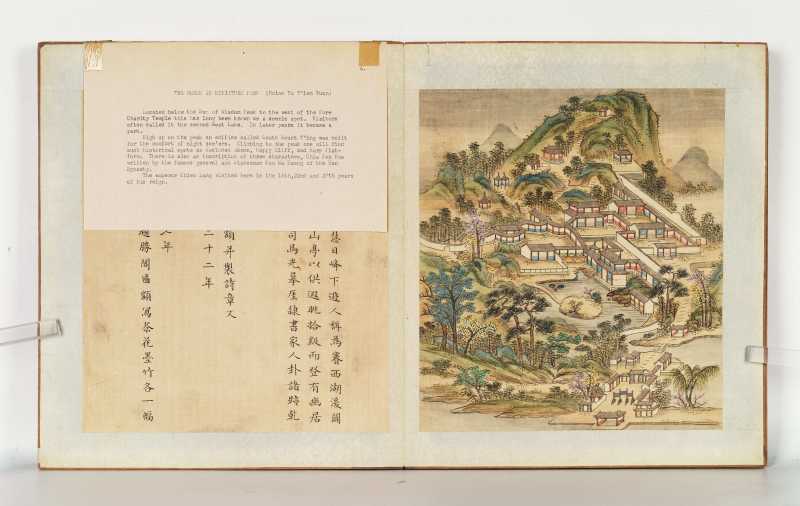 THE WORLD IN MINIATURE FORM (Hsiao Yu T'ien Yuan)
Located below the Sun of Wisdom Peak to the west of the Pure
Charity Temple this has long been known as a scenic spot. Visitors
often called it the second West Lake. In later years it became a
park.
High up on the peak an edifice called South Mount T'ing was built
for the comfort of sight see'ers. Climbing to the peak one will find
such historical spots as Secluded Abode, Happy Cliff, and Harp Plat-
form. There is also an inscription of three characters, Chia Jen Kua
written by the famous general and statesman Szu Ma Kuang of the Han
Dynasty.
The emperor Chien Lung visited here in the 16th,22nd and 27th years
of his reign.
慧日峰下遊人稱為賽西湖後闢
山亭以供遐眺拾級而登有幽居
司馬光摹崖隸書家人卦諸蹟乾
額并製詩章又
二十二年
年
勝閣匾額寫茶花墨竹各一幅